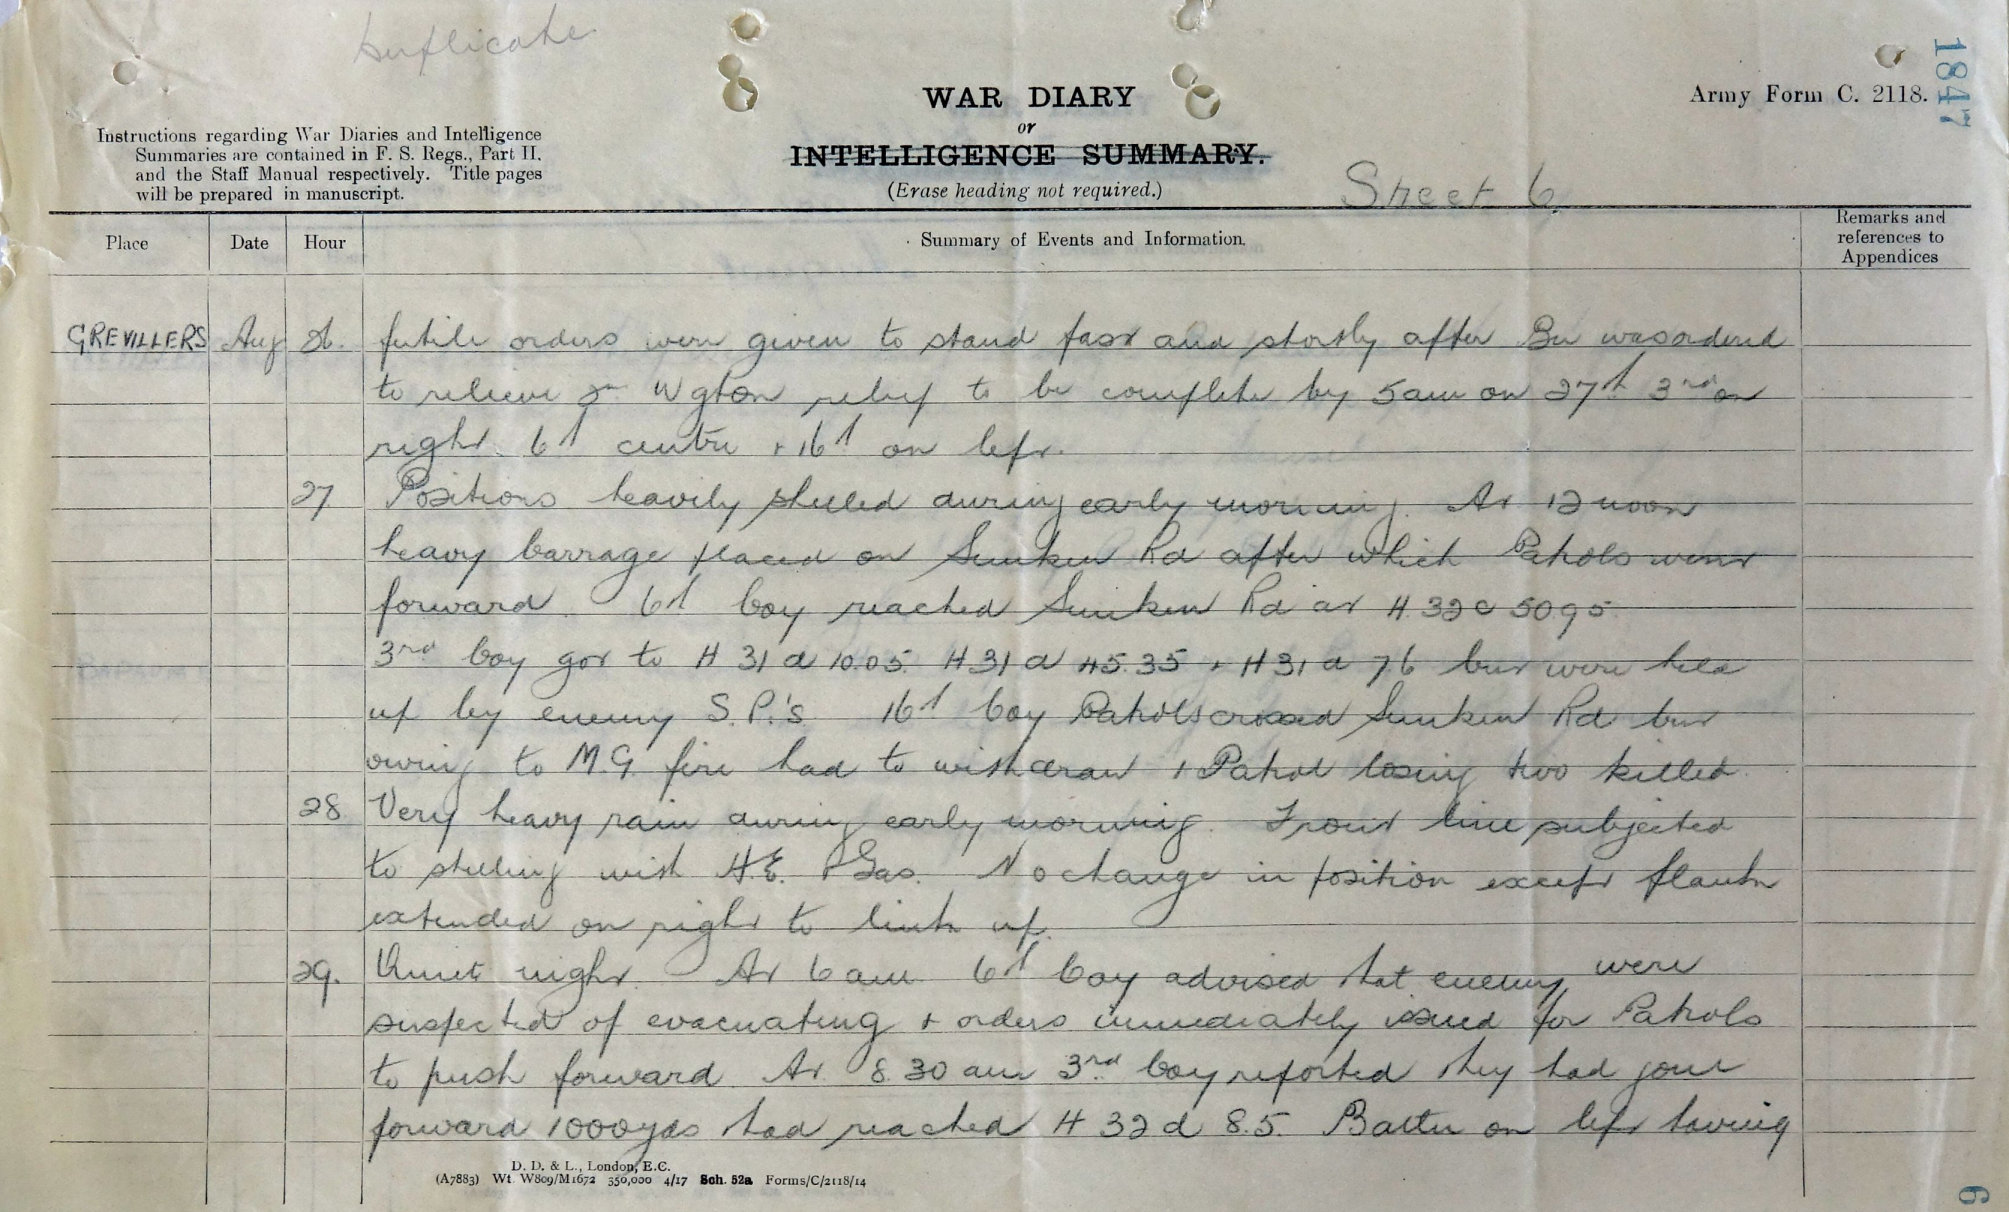 Duplicate
1847
WAR DIARY
or
INTELLIGENCE SUMMARY.
(Erase heading not required.)
Army Form C. 2118.
Instructions regarding War Diaries and Intelligence
Summaries are contained in F. S. Regs., Part II.
and the Staff Manual respectively. Title pages
will be prepared in manuscript.
Sheet 6
Place Date Hour Summary of Events and Information. Remarks and
references to
Appendices
GREVILLERS Aug 26. futile orders were given to stand fast and shortly after Bn was ordered
to relieve 2n Wgton relief to be complete by 5am on 27th 3rd on
right 6th centre + 16th on left.
27 Positions heavily shelled during early morning. At 12 noon
heavy barrage placed on Sunken Rd after which Patrols went
forward. 6th Coy reached Sunken Rd at H 32 c 50 95.
3rd Coy got to H 31 d 10.05. H 31 d 45.35 + H 31 d 7.6 but were held
up by enemy S.P.'s 16th Coy Patrols crossed Sunken Rd but
owing to M.G. fire had to withdraw 1 Patrol losing two killed.
28 Very heavy rain during early morning. Front line subjected
to shelling with H.E. & Gas. No change in position except flank
extended on right to link up.
29. Quiet night. At 6 am 6th Coy advised that enemy were
suspected of evacuating + orders immediately issued for Patrols
to push forward. At 8.30 am 3rd Coy reported they had gone
forward 1000 yds had reached H 32 d 8.5. Battn on left having
D. D. & L., London, E.C.
(A7883) Wt. W809/M1672 350,000 4/17 Sch. 52a Forms/C/2118/14
6